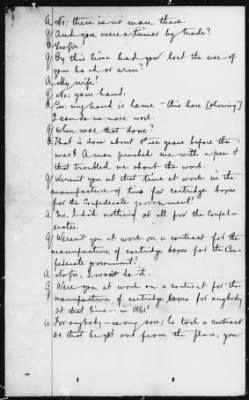 A No; there is no man there.
Q And you were a tinner by trade?
A Yes sir.
Q By this time had you lost the use of
your hand or arm?
A My wife?
Q No; your hand.
A Yes; my hand is lame – this here [showing]
I can do no more work.
Q When was that done?
A That is done about three years before the
war. A man punched me with a
that troubled me about the work.
Q Weren't you at that time at work in the
manufacture of tins for cartridge boxes
for the Confederate government?
A No, I did nothing at all for the Confed-
erates.
Q Weren't you at work on a contract for the
manufacture of cartridge boxes for the Con-
federate government?
A No sir, I would't do it.
Q Were you at work on a contract for the
manufacture of cartridge boxes for anybody
at that time – in 1861?
A For anybody – is my son; he took a contract
so that he get out from the place, you